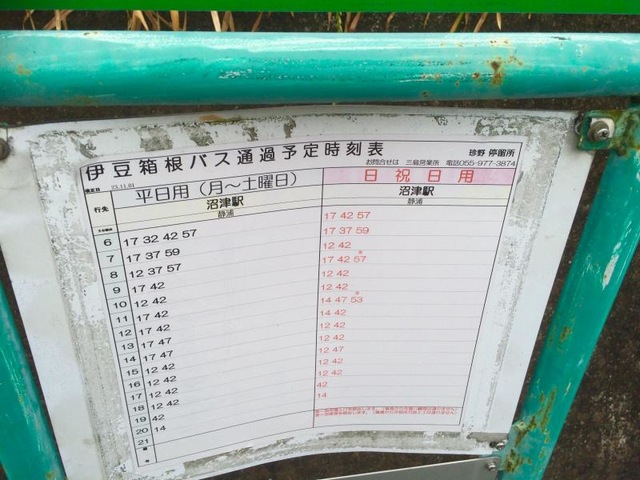 伊豆箱根バス通過予定時刻表
珍野 停留所
お問合せは 三島営業所 電話055-977-3874
23.11.01
行先 平日用（月～土曜日） 日 祝 日 用
沼津駅 沼津駅
静浦 静浦
6 17 32 42 57 17 42 57
7 17 37 59 17 37 59
8 12 37 57 12 42
9 17 42 17 42 57
10 12 42 12 42
11 17 42 12 42
12 17 42 14 47 53
13 17 47 14 42
14 17 47 12 42
15 12 42 12 42
16 12 42 12 47
17 12 42 12 42
18 12 42 12 42
19 42 42
20 14 14
21